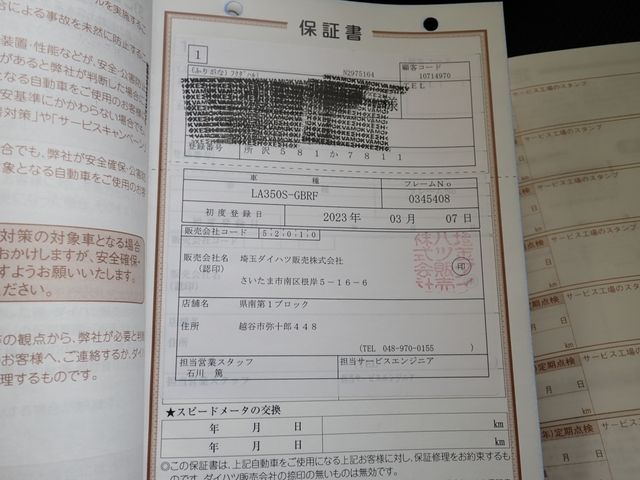 保証書
1
(ふりがな)
N2975164
顧客コード
10714970
TEL
様
登録番号
所沢 581か7811
車種
フレームNo
LA350S-GBRF
0345408
初度登録日
2023年 03月 07日
販売会社コード
52010
販売会社名
(認印)
埼玉ダイハツ販売株式会社
さいたま市南区根岸5-16-6
印
店舗名
県南第1ブロック
住所
越谷市弥十郎448
(TEL 048-970-0155 )
担当営業スタッフ
石川 篤
担当サービスエンジニア
★スピードメータの交換
年 月 日
km
年 月 日
km
◎この保証書は、上記自動車をご使用になる上記お客様に対し、保証修理をお約束するも
のです。ダイハツ販売会社の捺印の無いものは無効です。
合による事故を未然に防止する
装置・性能などが、安全・公害防
があると弊社が判断した場合に
となる自動車をご使用のお客様
安基準にかかわらない場合でも
対策」や「サービスキャンペーン
合でも、弊社が安全確保・公害
対象となる自動車をご使用のお客
対策の対象車となる場合
おかけしますが、安全確保・
すようお願いいたします。
ださい。
の観点から、弊社が必要と判
のお客様へ、ご連絡するか、ダイ
修理するものです。
サービス工場のスタンプ
サービス工場のスタンプ
サービス工場のスタンプ
サービス工場のスタンプ
日
km
定期点検
サービス工場のスタンプ
月 日
km
定期点検
サービス工場のスタンプ
月 日
km
年)定期点検
サービス工場のスタンプ
月 日
km